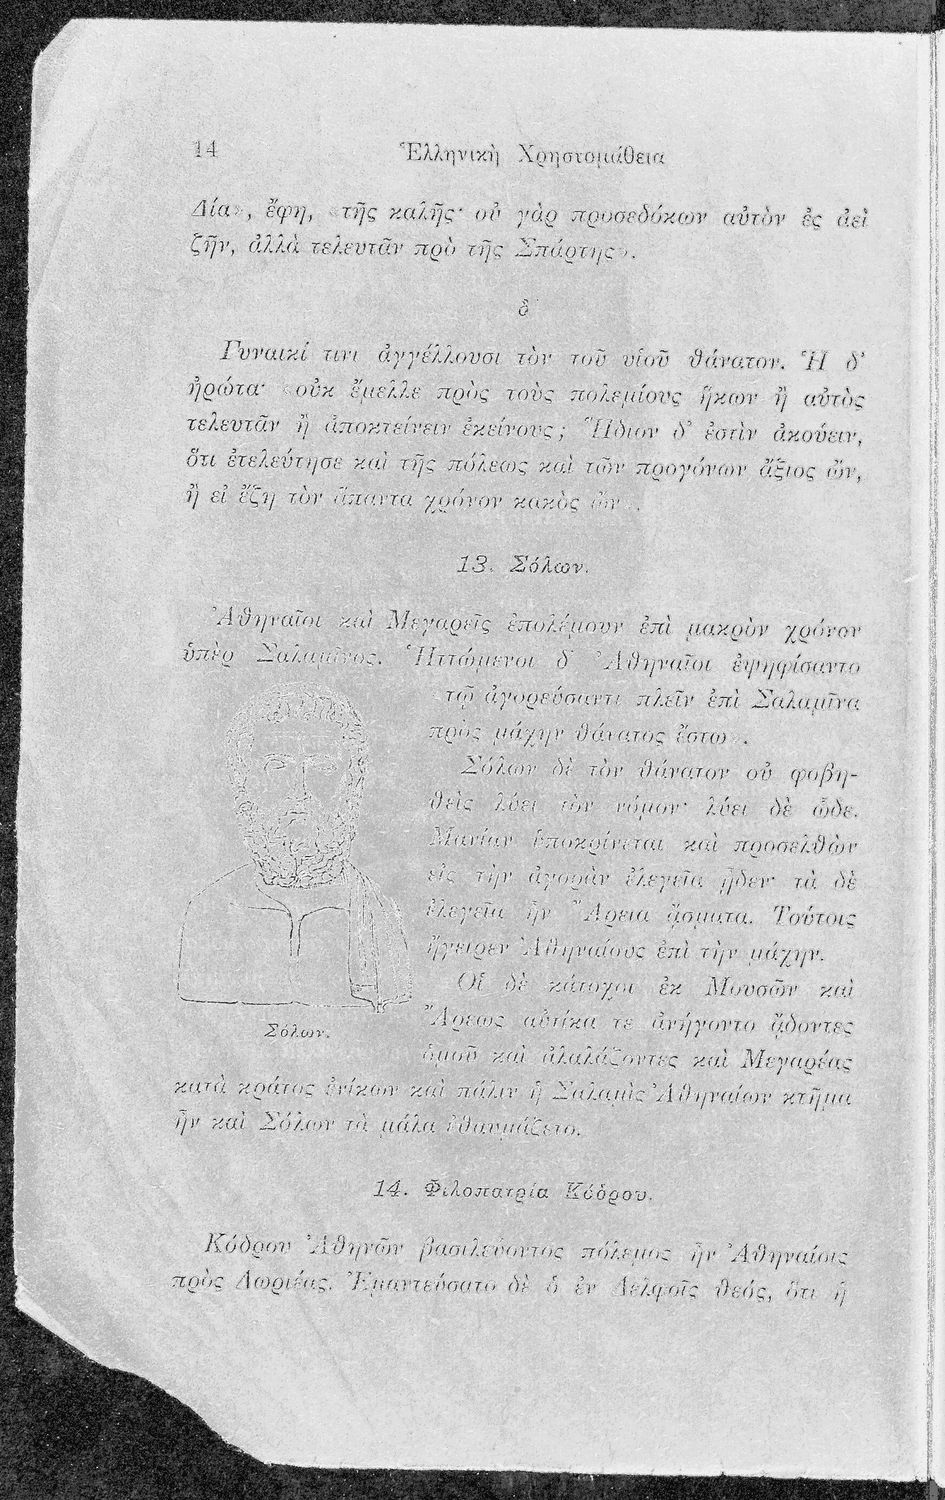 14 Ἑλληνικὴ Χρηστομάθεια
Δία», ἔφη, «τῆς καλῆς· οὐ γὰρ προσεδόκων αὐτὸν ἐς ἀεὶ
ζῆν, ἀλλὰ τελευτᾶν πρὸ τῆς Σπάρτης».
δ΄
Γυναικί τινι ἀγγέλλουσι τὸν τοῦ υἱοῦ θάνατον. Ἡ δ’
ἠρώτα· «οὐκ ἔμελλε πρὸς τοὺς πολεμίους ἥκων ἢ αὐτὸς
τελευτᾶν ἢ ἀποκτείνειν ἐκείνους; Ἥδιον δ’ ἐστὶν ἀκούειν,
ὅτι ἐτελεύτησε καὶ τῆς πόλεως καὶ τῶν προγόνων ἄξιος ὤν,
ἢ εἰ ἔζη τὸν ἅπαντα χρόνον κακὸς ὤν».
13. Σόλων.
Ἀθηναῖοι καὶ Μεγαρεῖς ἐπολέμουν ἐπὶ μακρὸν χρόνον
ὑπὲρ Σαλαμῖνος. Ἡττώμενοι δ’ Ἀθηναῖοι ἐψηφίσαντο
«τῷ ἀγορεύσαντι πλεῖν ἐπὶ Σαλαμῖνα
πρὸς μάχην θάνατος ἔστω».
Σόλων δὲ τὸν θάνατον οὐ φοβη-
θεὶς λύει τὸν νόμον· λύει δὲ ὧδε.
Μανίαν ὑποκρίνεται καὶ προσελθὼν
εἰς τὴν ἀγορὰν ἐλεγεῖα ᾖδεν· τὰ δὲ
ἐλεγεῖα ἦν Ἄρεια ᾄσματα. Τούτοις
ἤγειρεν Ἀθηναίους ἐπὶ τὴν μάχην.
Οἱ δὲ κάτοχοι ἐκ Μουσῶν καὶ
Ἄρεως αὐτίκα τε ἀνήγοντο ᾄδοντες
ὁμοῦ καὶ ἀλαλάζοντες καὶ Μεγαρέας
κατὰ κράτος ἐνίκων καὶ πάλιν ἡ Σαλαμὶς Ἀθηναίων κτῆμα
ἦν καὶ Σόλων τὰ μάλα ἐθαυμάζετο.
Σόλων.
14. Φιλοπατρία Κόδρου.
Κόδρου Ἀθηνῶν βασιλεύοντος πόλεμος ἦν Ἀθηναίοις
πρὸς Δωριέας. Ἐμαντεύσατο δὲ ὁ ἐν Δελφοῖς θεός, ὅτι ἡ